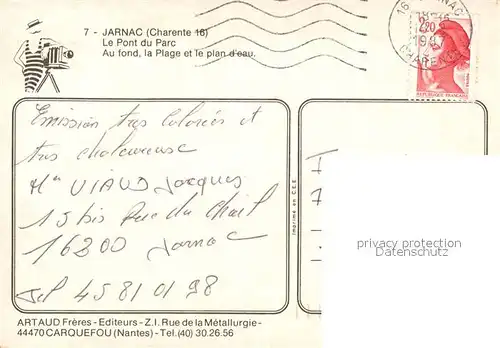 7 - JARNAC (Charente 16)
Le Pont du Parc
Au fond, la Plage et le plan d'eau.
16 JARNAC
CHARENTE
2,20
REPUBLIQUE FRANÇAISE
Emission tres colorées et
tres chaleureuse
Mr VIAUD Jacques
15 bis Rue du Chail
16200 Jarnac
Tel 45 81 01 98
Imprimé en C.E.E.
privacy protection
Datenschutz
ARTAUD Frères - Editeurs - Z.I. Rue de la Métallurgie -
44470 CARQUEFOU (Nantes) - Tel. (40) 30.26.56